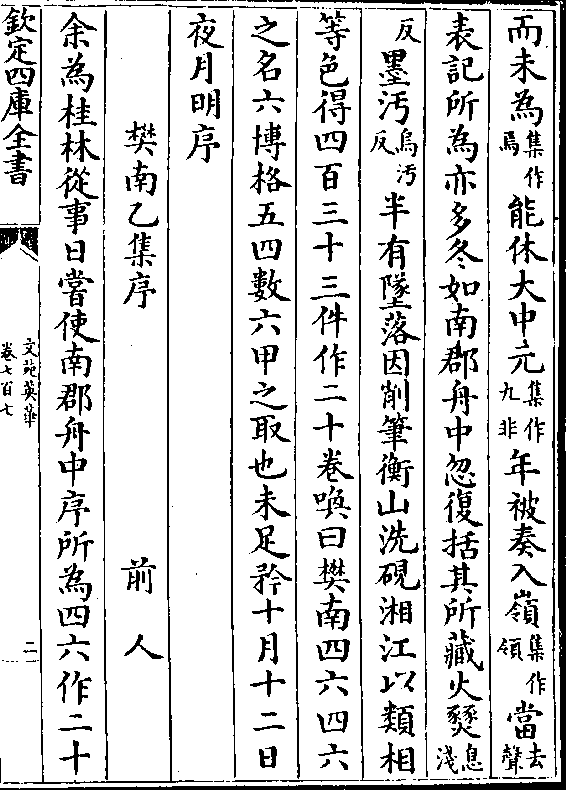 而未為集作焉能休大中元集作九非年被奏入嶺集作領當去聲
表記所為亦多冬如南郡舟中忽復括其所藏火燹息淺
反墨汚烏汚反半有墜落因削筆衡山洗硯湘江以類相
等色得四百三十三件作二十卷喚曰樊南四六四六
之名六博格五四數六甲之取也未足矜十月十二日
夜月明序
樊南乙集序 前人
余為桂林從事日嘗使南郡舟中序所為四六作二十
欽定四庫全書
文苑英華
卷七百七
二